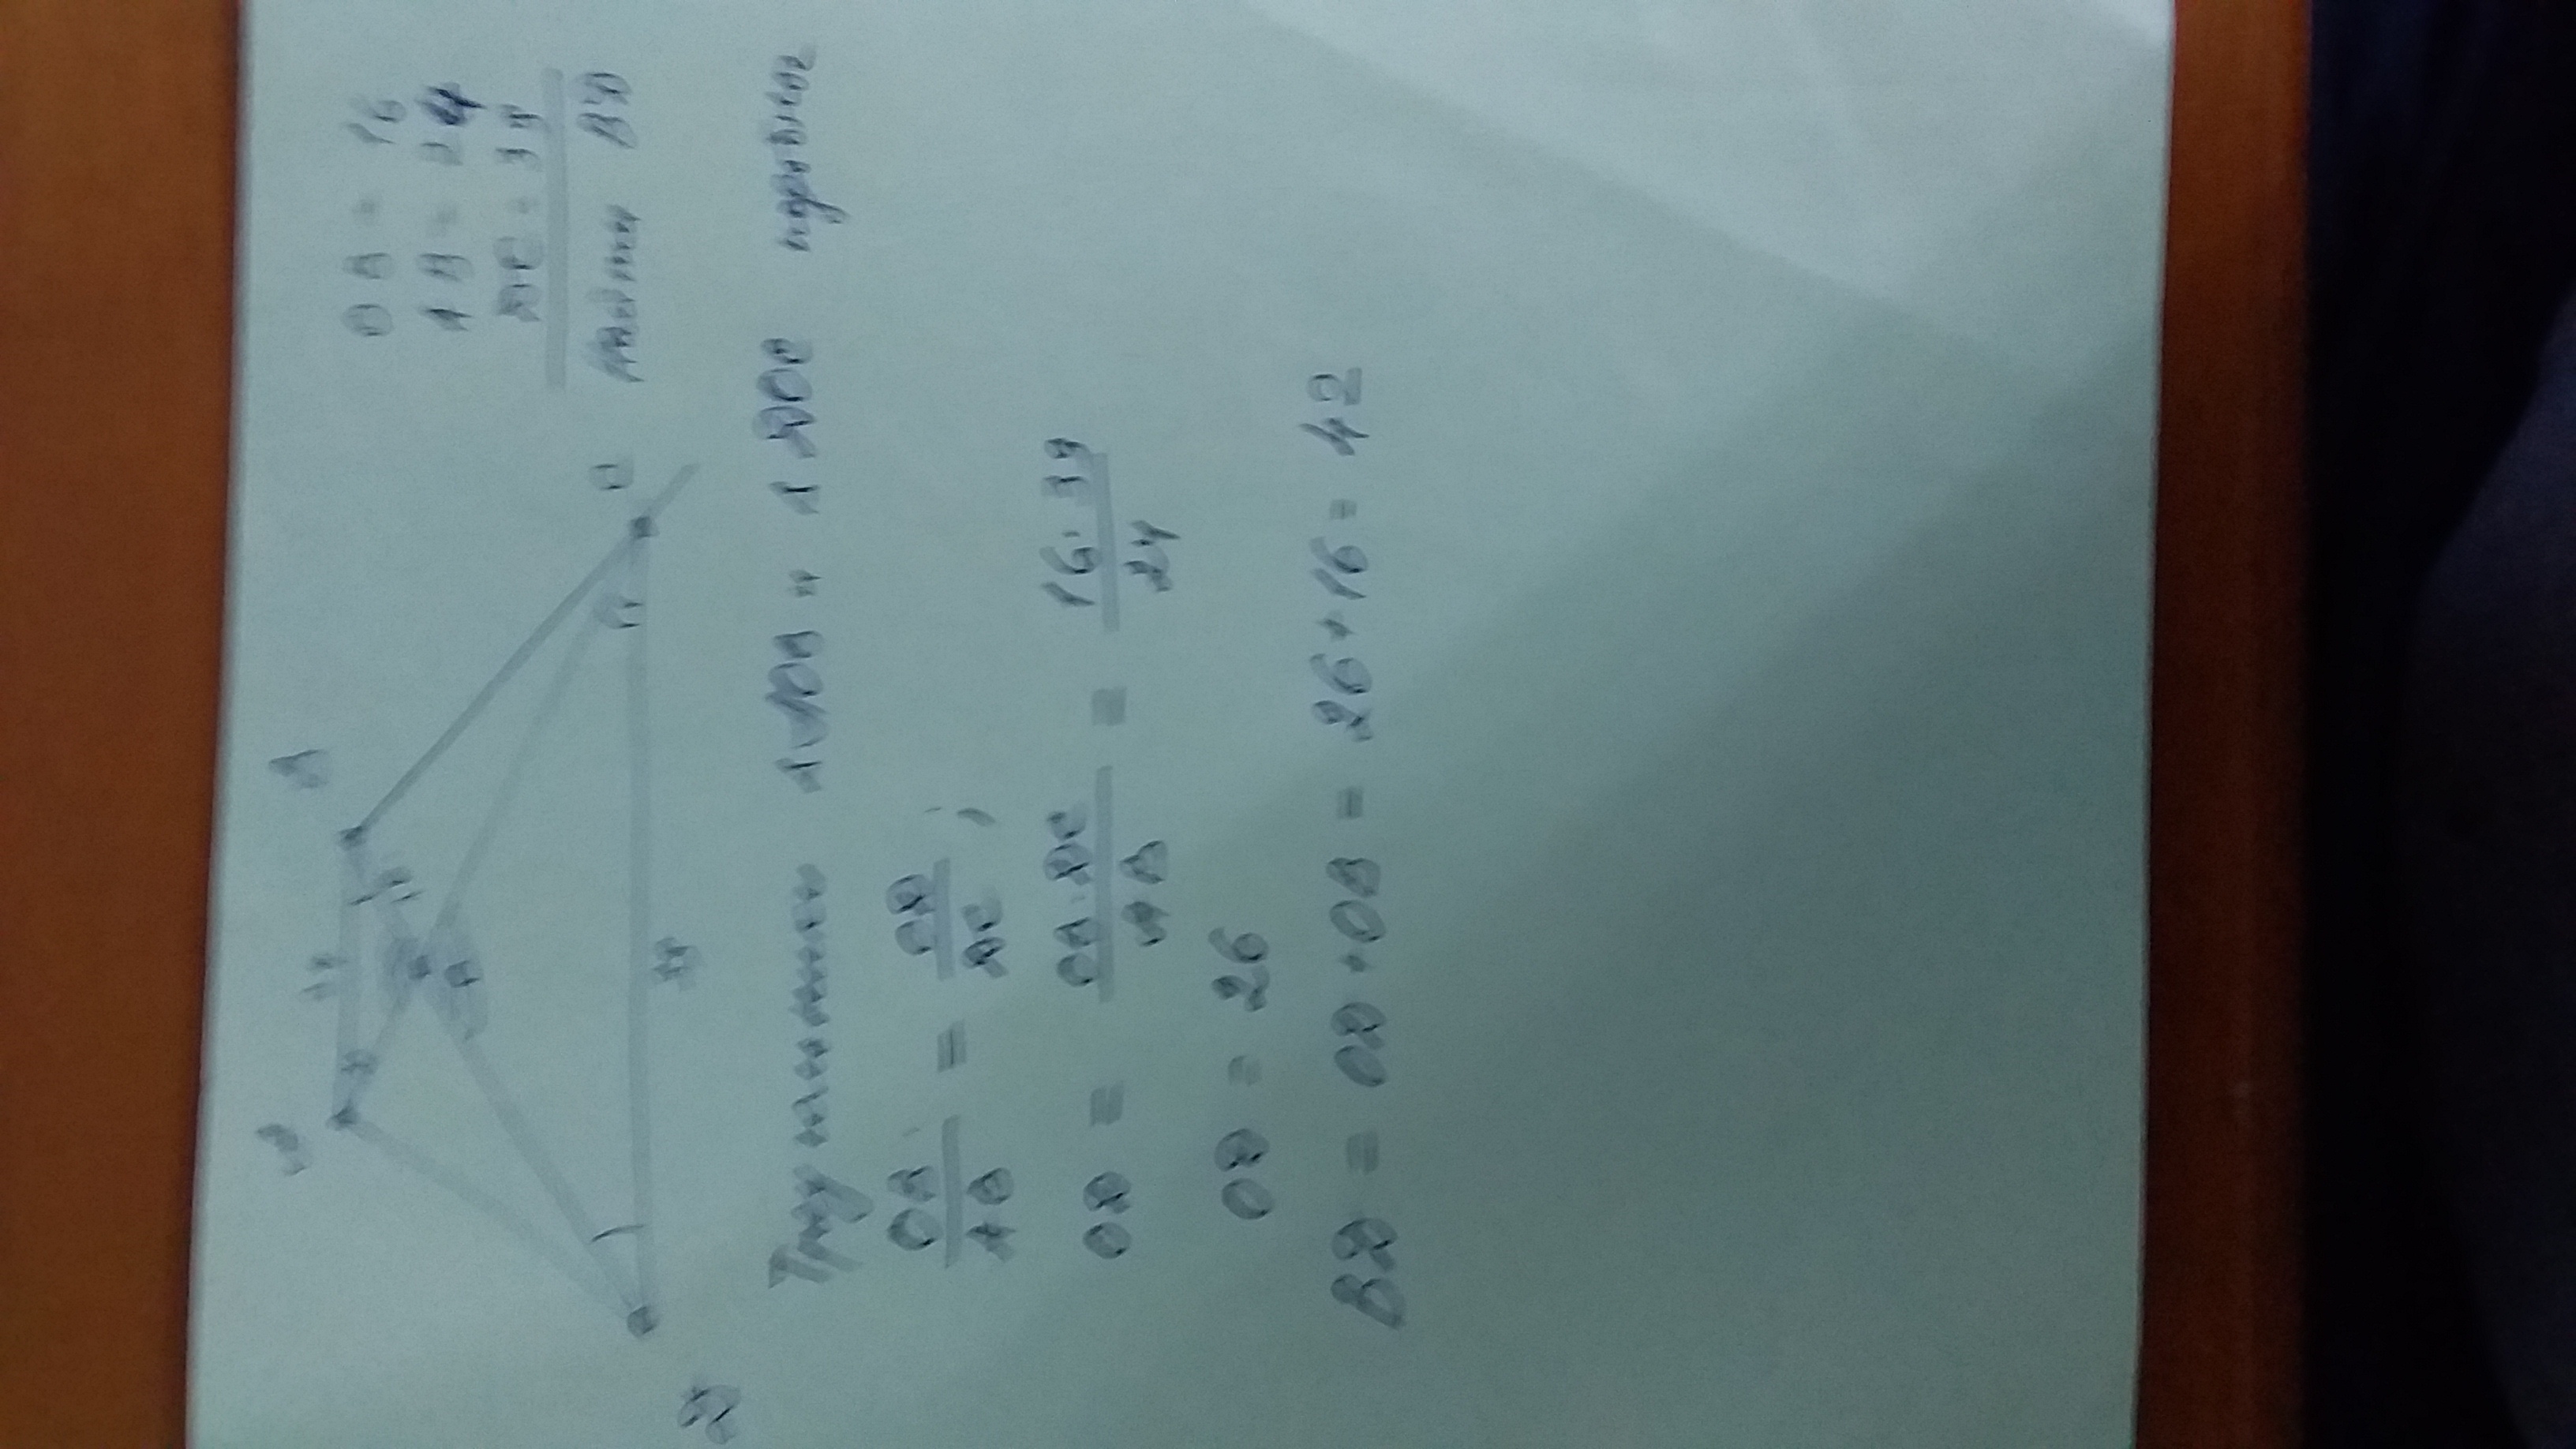 B
A
OB = 16
24
AB = 24
DC = 39
O
Найти BD
39
D
C
Треугольники △ AOB и △ DOC подобные
OB/AB = OD/DC ;
OD = OB · DC/AB = 16 · 39/24
OD = 26
BD = OD + OB = 26 + 16 = 42